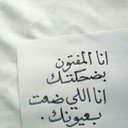 انا المفتون
بضحكتك
انا اللي ضعت
بعيونك.